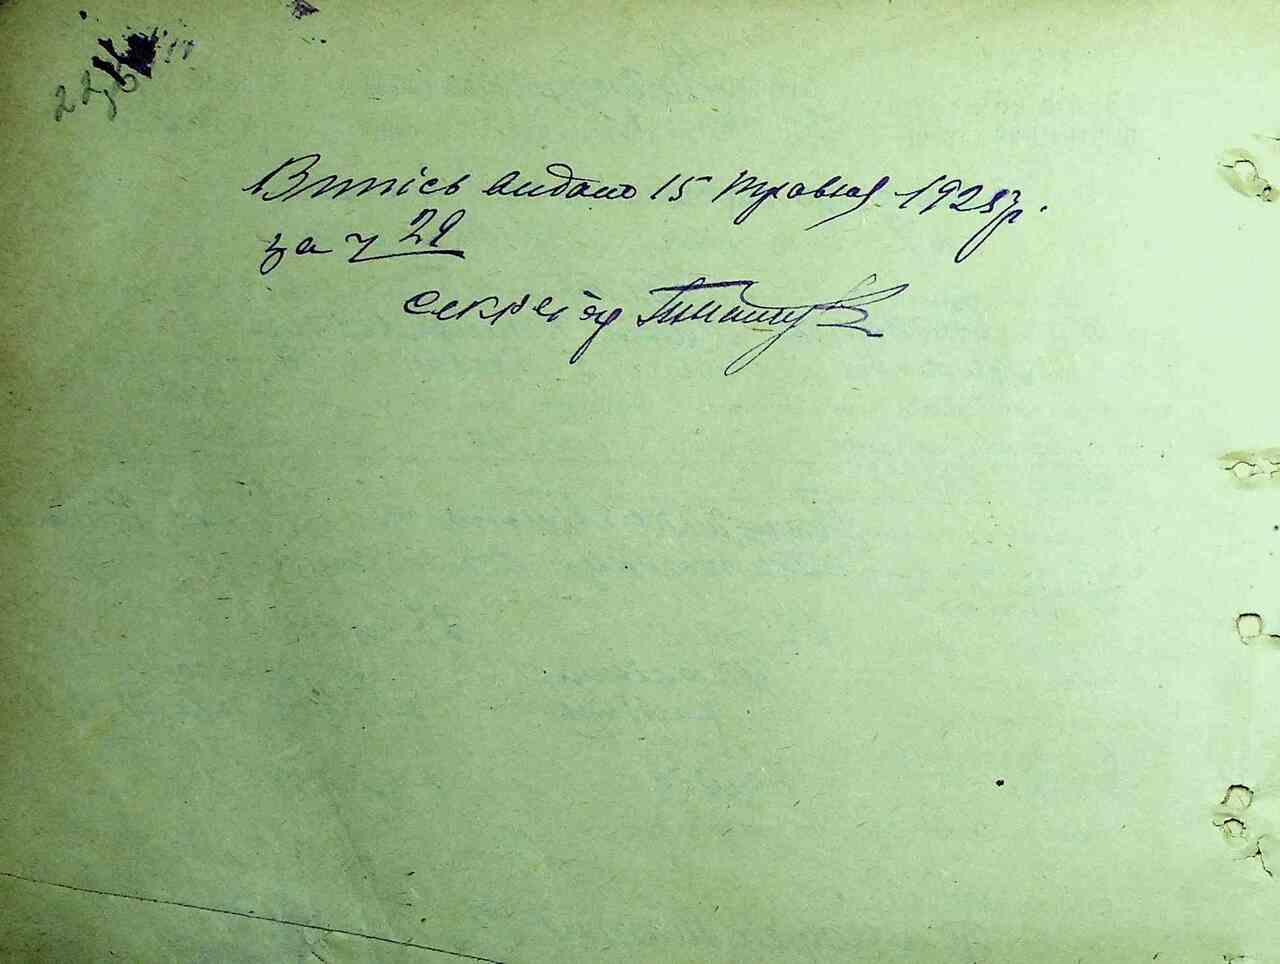 Випісь видано 15 травня 1928 р.
за ч 29
секретар